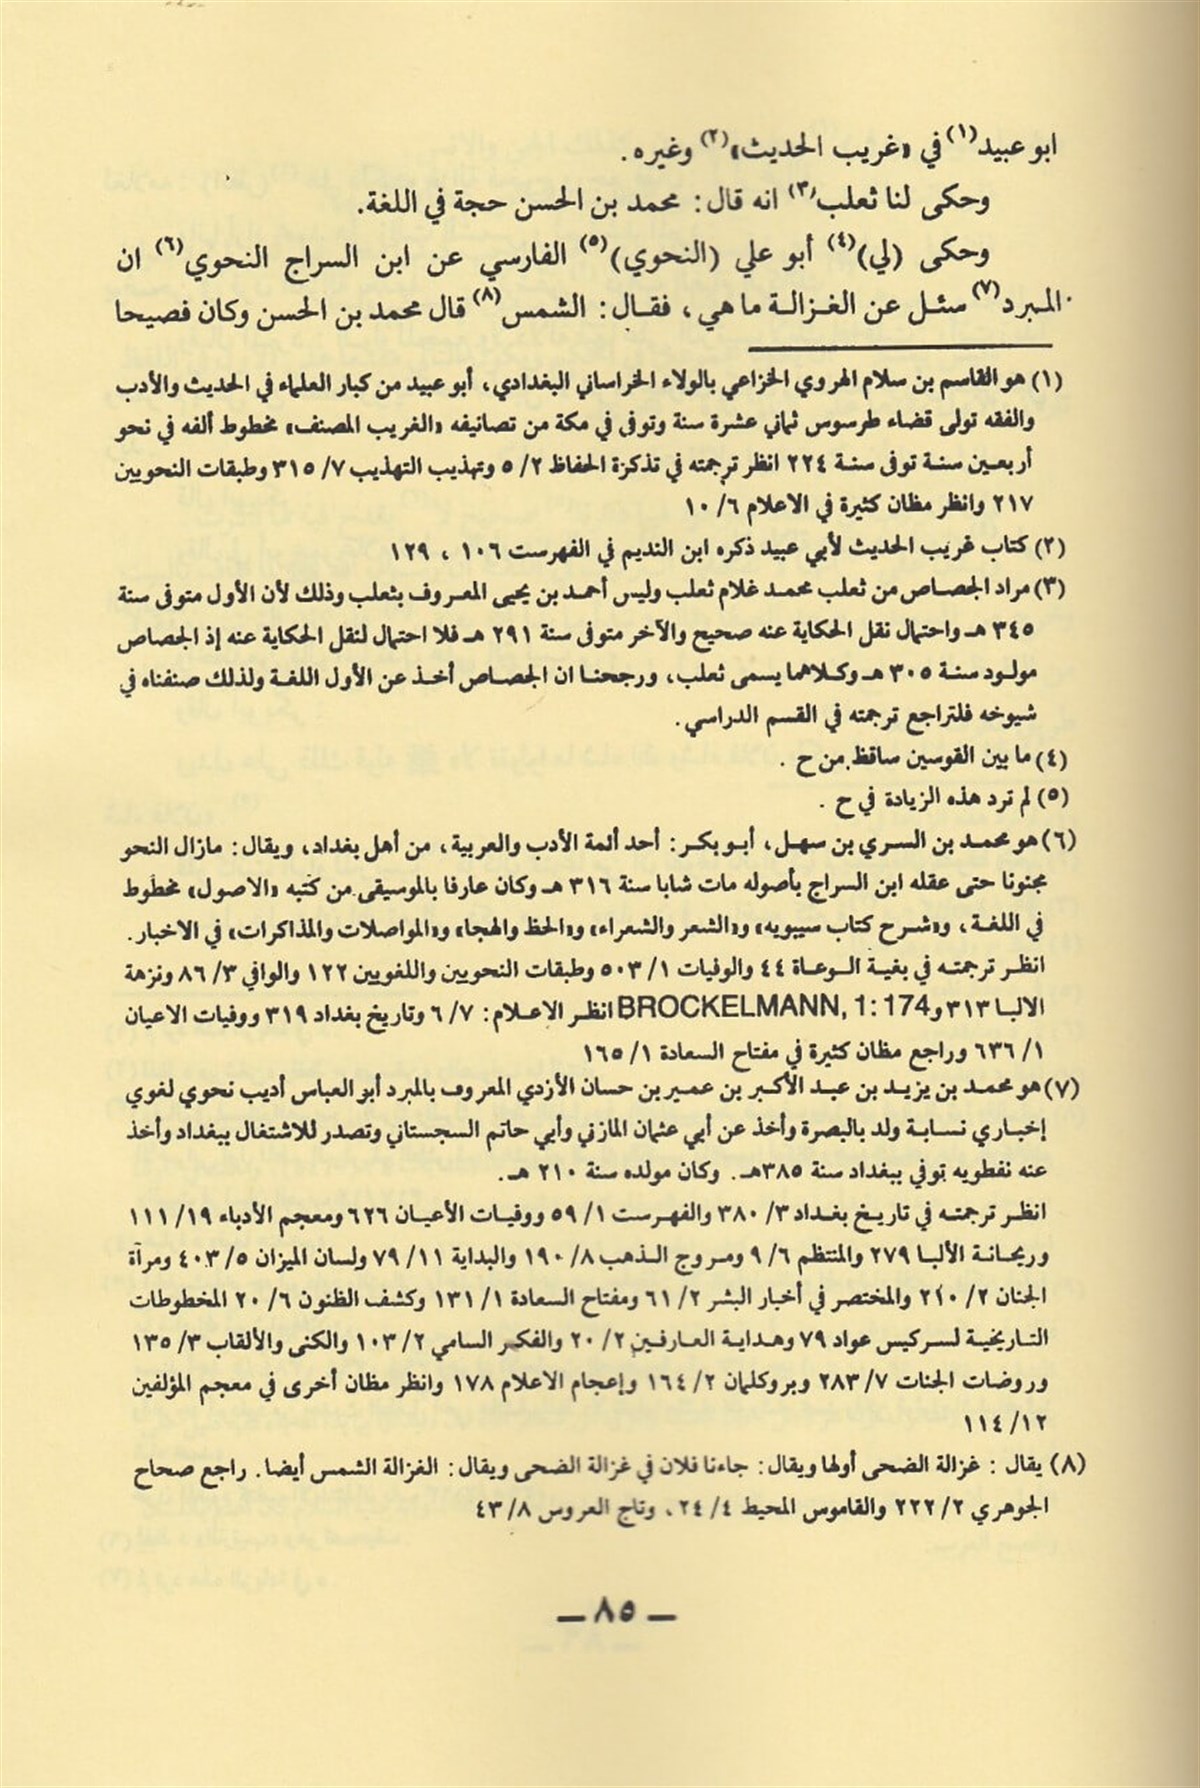 ابو عبيد(١) في «غريب الحديث»(٢) وغيره.
وحكى لنا ثعلب(٣) انه قال: محمد بن الحسن حجة في اللغة.
وحكى (لي)(٤) أبو علي (النحوي)(٥) الفارسي عن ابن السراج النحوي(٦) ان
المبرد(٧) سئل عن الغزالة ما هي، فقال: الشمس(٨) قال محمد بن الحسن وكان فصيحا
(١) هو القاسم بن سلام الهروي الخزاعي بالولاء الخراساني البغدادي، أبو عبيد من كبار العلماء في الحديث والأدب
والفقه تولى قضاء طرسوس ثماني عشرة سنة وتوفى في مكة من تصانيفه «الغريب المصنف» مخطوط ألفه في نحو
أربعين سنة توفى سنة ٢٢٤ انظر ترجمته في تذكرة الحفاظ ٢/ ٥ وتهذيب التهذيب ٧/ ٣١٥ وطبقات النحويين
٢١٧ وانظر مظان كثيرة في الاعلام ٦/ ١٠
(٢) كتاب غريب الحديث لأبي عبيد ذكره ابن النديم في الفهرست ١٠٦ ، ١٢٩
(٣) مراد الجصاص من ثعلب محمد غلام ثعلب وليس أحمد بن يحيى المعروف بثعلب وذلك لأن الأول متوفى سنة
٣٤٥ هـ واحتمال نقل الحكاية عنه صحيح والآخر متوفى سنة ٢٩١ هـ فلا احتمال لنقل الحكاية عنه إذ الجصاص
مولود سنة ٣٠٥ هـ وكلاهما يسمى ثعلب، ورجحنا ان الجصاص أخذ عن الأول اللغة ولذلك صنفناه في
شيوخه فلتراجع ترجمته في القسم الدراسي.
(٤) ما بين القوسين ساقط من ح .
(٥) لم ترد هذه الزيادة في ح .
(٦) هو محمد بن السري بن سهل، أبو بكر: أحد ألمة الأدب والعربية، من أهل بغداد، ويقال: مازال النحو
مجنونا حتى عقله ابن السراج بأصوله مات شابا سنة ٣١٦ هـ وكان عارفا بالموسيقى من كتبه «الاصول» مخطوط
في اللغة، و«شرح كتاب سيبويه» و«الشعر والشعراء» و«الخط والهجا» و«المواصلات والمذاكرات» في الاخبار.
انظر ترجمته في بغية الوعاة ٤٤ والوفيات ١/ ٥٠٣ وطبقات النحويين واللغويين ١٢٢ والوافي ٣/ ٨٦ ونزهة
الالبا ٣١٣ وBROCKELMANN, 1: 174 انظر الاعلام: ٧/ ٦ وتاريخ بغداد ٣١٩ ووفيات الاعيان
١/ ٦٣٦ وراجع مظان كثيرة في مفتاح السعادة ١/ ١٦٥
(٧) هو محمد بن يزيد بن عبد الأكبر بن عمير بن حسان الأزدي المعروف بالمبرد أبو العباس أديب نحوي لغوي
إخباري نسابة ولد بالبصرة وأخذ عن أبي عثمان المازني وأبي حاتم السجستاني وتصدر للاشتغال ببغداد وأخذ
عنه نفطويه توفي ببغداد سنة ٣٨٥هـ. وكان مولده سنة ٢١٠ هـ.
انظر ترجمته في تاريخ بغداد ٣/ ٣٨٠ والفهرست ١/ ٥٩ ووفيات الأعيان ٦٢٦ ومعجم الأدباء ١٩/ ١١١
وريحانة الألبا ٢٧٩ والمنتظم ٦/ ٩ ومروج الذهب ٨/ ١٩٠ والبداية ١١/ ٧٩ ولسان الميزان ٥/ ٤٠٣ ومرآة
الجنان ٢/ ٢١٠ والمختصر في أخبار البشر ٢/ ٦١ ومفتاح السعادة ١/ ١٣١ وكشف الظنون ٦/ ٢٠ المخطوطات
التاريخية لسركيس عواد ٧٩ وهداية العارفين ٢/ ٢٠ والفكر السامي ٢/ ١٠٣ والكنى والألقاب ٣/ ١٣٥
وروضات الجنات ٧/ ٢٨٣ وبروكلمان ٢/ ١٦٤ وإعجام الاعلام ١٧٨ وانظر مظان أخرى في معجم المؤلفين
١٢/ ١١٤
(٨) يقال : غزالة الضحى أولها ويقال: جاءنا فلان في غزالة الضحى ويقال: الغزالة الشمس أيضا. راجع صحاح
الجوهري ٢/ ٢٢٢ والقاموس المحيط ٤/ ٢٤، وتاج العروس ٨/ ٤٣
— ٨٥ —